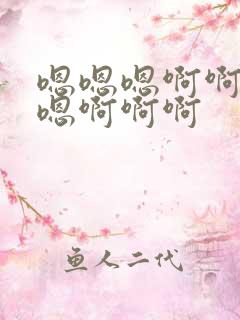 嗯嗯嗯啊啊
嗯啊啊啊
鱼人二代